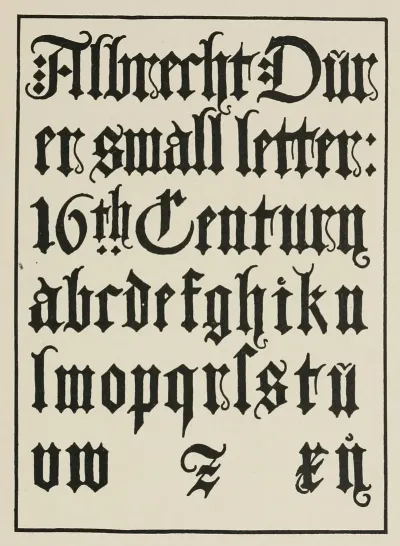 Albrecht Dür
er small letter:
16th Century
abcdefghikn
lmopqrſstü
vw z xÿ